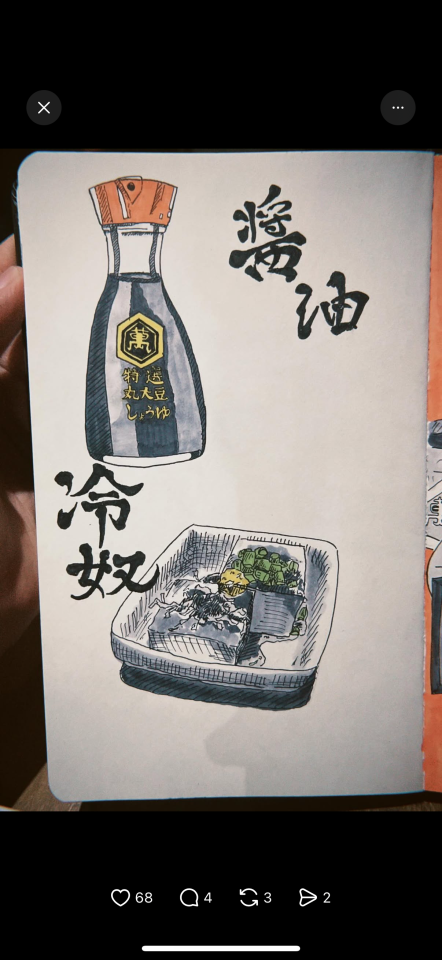 醬
油
萬
特選
丸大豆
しょうゆ
冷
奴
68 4 3 2